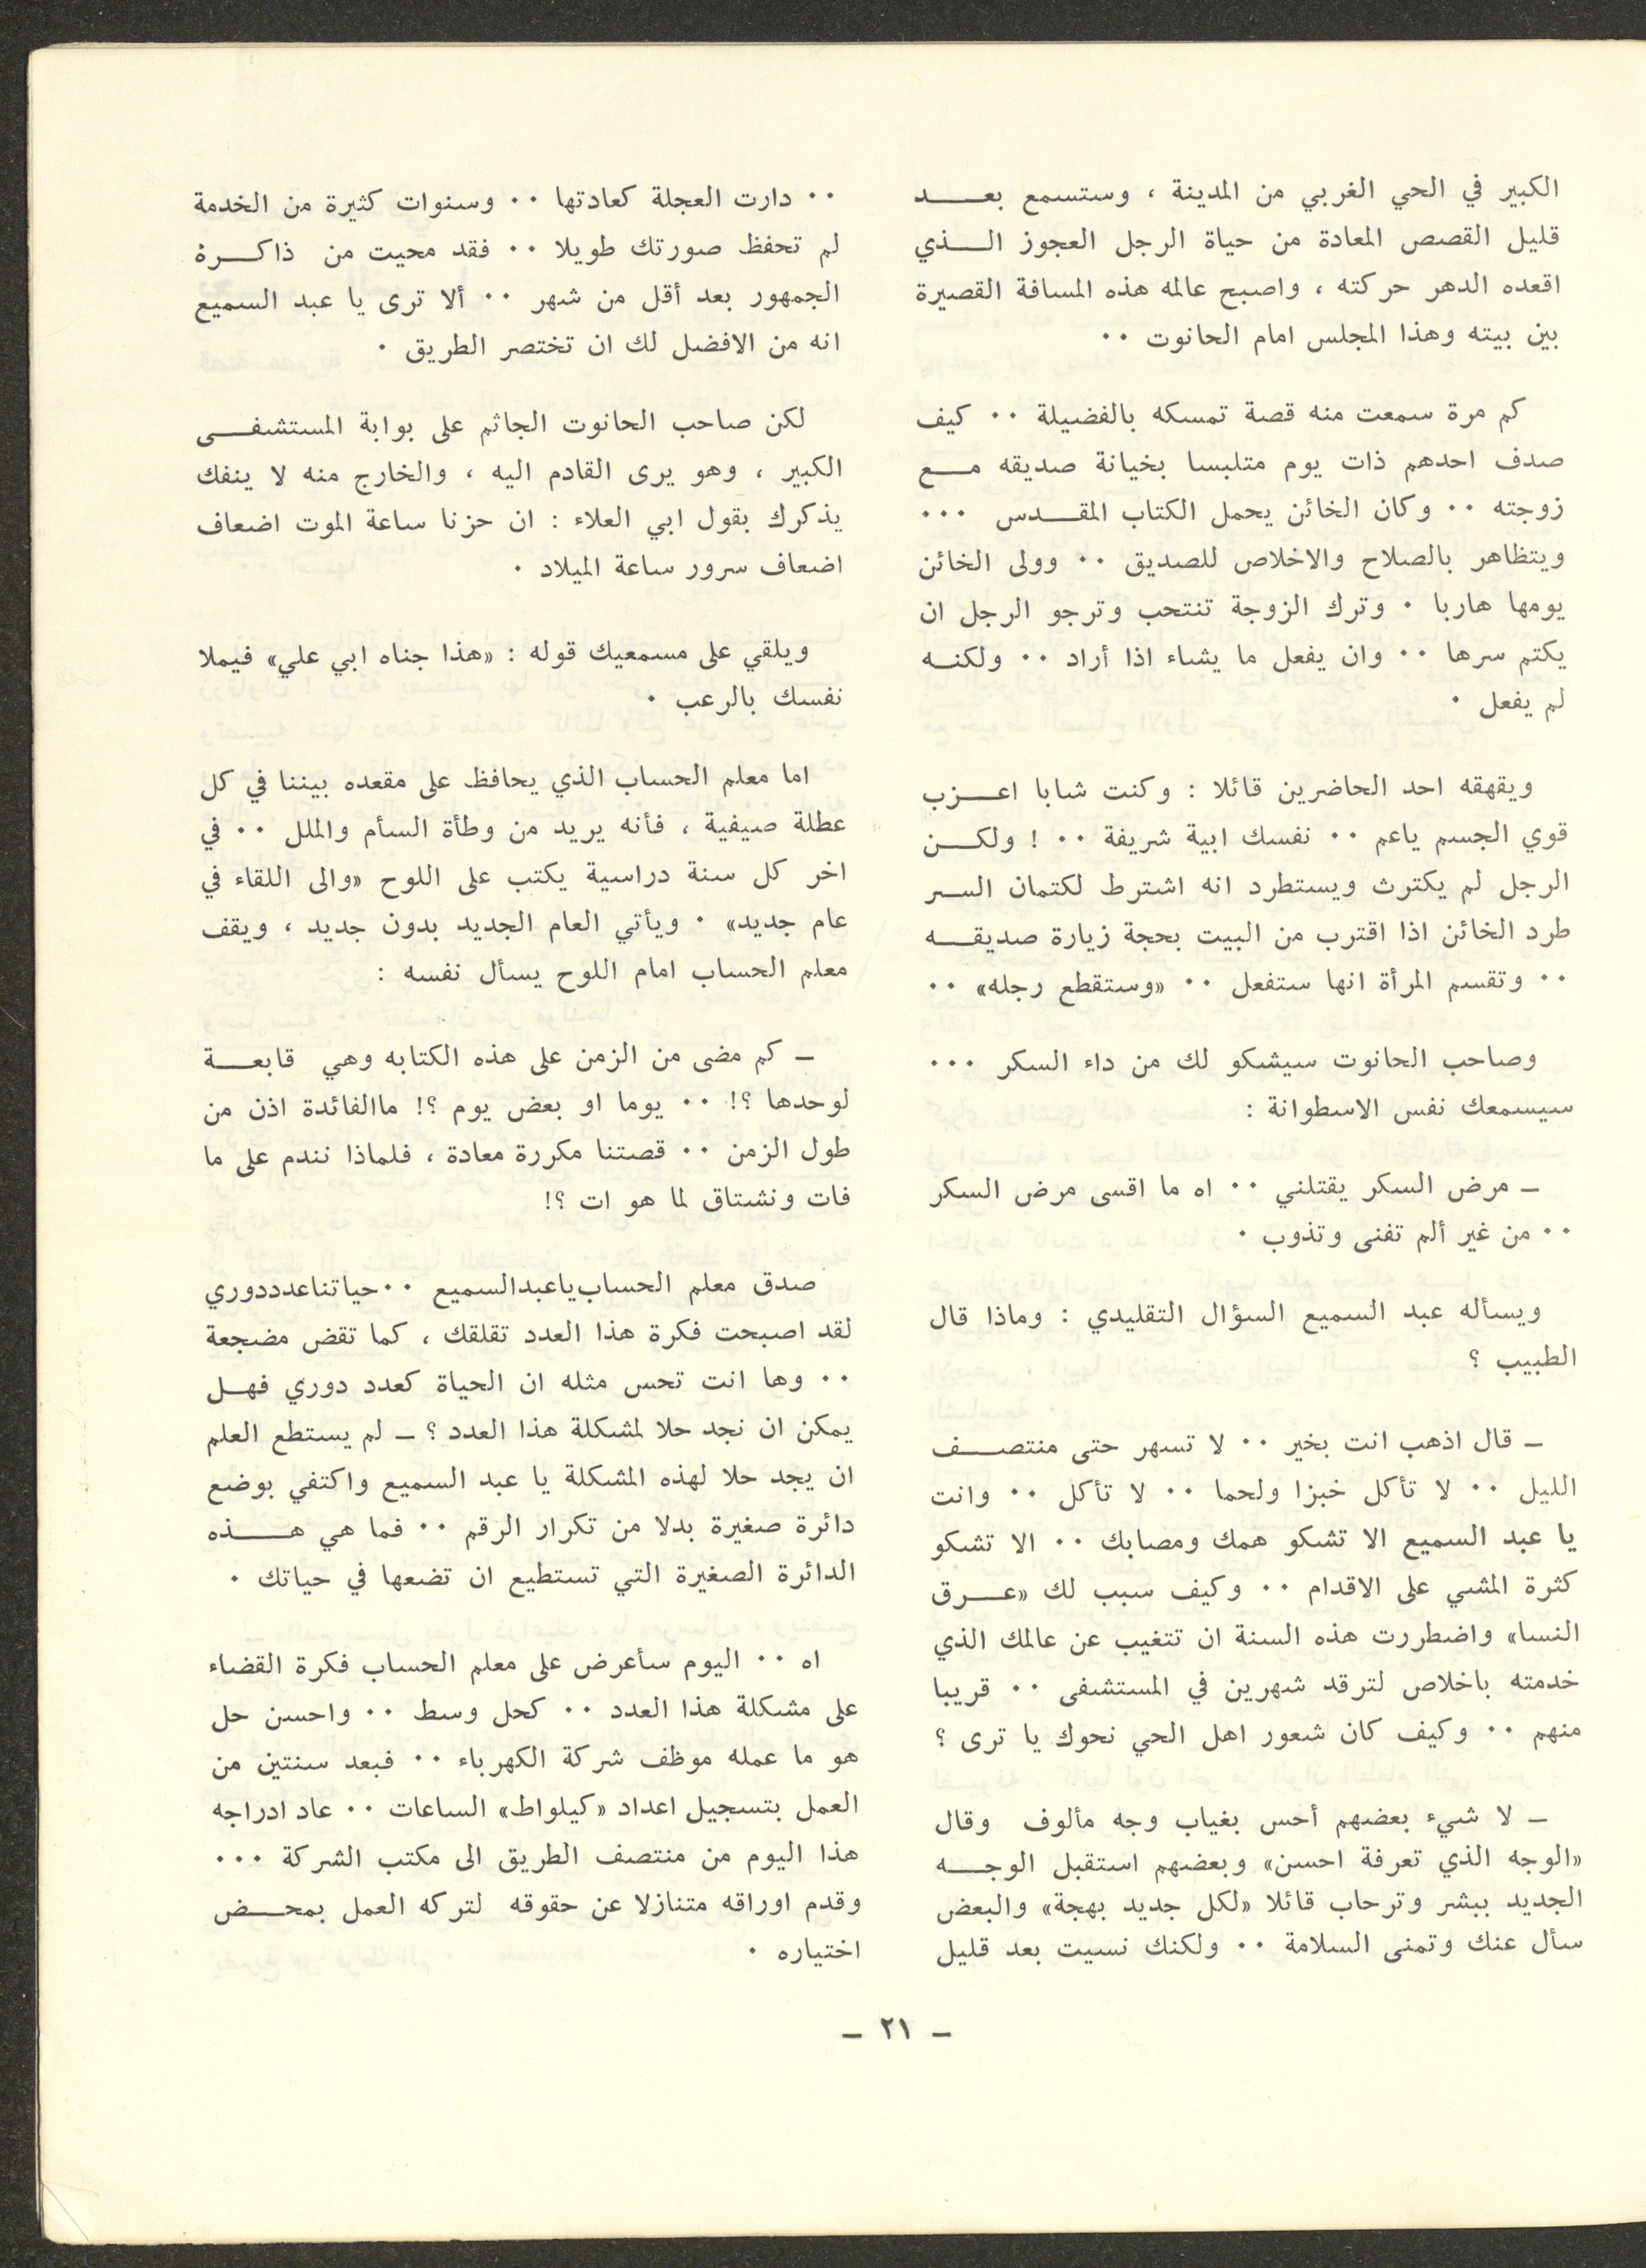 الكبير في الحي الغربي من المدينة ، وستسمع بعـــد
قليل القصص المعادة من حياة الرجل العجوز الـــذي
اقعده الدهر حركته ، واصبح عالمه هذه المسافة القصيرة
بين بيته وهذا المجلس امام الحانوت ٠٠
كم مرة سمعت منه قصة تمسكه بالفضيلة ٠٠ كيف
صدف احدهم ذات يوم متلبسا بخيانة صديقه مـــع
زوجته ٠٠ وكان الخائن يحمل الكتاب المقـــدس ٠٠٠
ويتظاهر بالصلاح والاخلاص للصديق ٠٠ وولى الخائن
يومها هاربا ٠ وترك الزوجة تنتحب وترجو الرجل ان
يكتم سرها ٠٠ وان يفعل ما يشاء اذا أراد ٠٠ ولكنــه
لم يفعل ٠
ويقهقه احد الحاضرين قائلا : وكنت شابا اعـــزب
قوي الجسم ياعم ٠٠ نفسك ابية شريفة ٠٠ ! ولكـــن
الرجل لم يكترث ويستطرد انه اشترط لكتمان الســر
طرد الخائن اذا اقترب من البيت بحجة زيارة صديقـــه
٠٠ وتقسم المرأة انها ستفعل ٠٠ «وستقطع رجله» ٠٠
وصاحب الحانوت سيشكو لك من داء السكر ٠٠٠
سيسمعك نفس الاسطوانة :
ـ مرض السكر يقتلني ٠٠ اه ما اقسى مرض السكر
٠٠ من غير ألم تفنى وتذوب ٠
ويسأله عبد السميع السؤال التقليدي : وماذا قال
الطبيب ؟
ـ قال اذهب انت بخير ٠٠ لا تسهر حتى منتصـــف
الليل ٠٠ لا تأكل خبزا ولحما ٠٠ لا تأكل ٠٠ وانت
يا عبد السميع الا تشكو همك ومصابك ٠٠ الا تشكو
كثرة المشي على الاقدام ٠٠ وكيف سبب لك «عـــرق
النسا» واضطررت هذه السنة ان تتغيب عن عالمك الذي
خدمته باخلاص لترقد شهرين في المستشفى ٠٠ قريبا
منهم ٠٠ وكيف كان شعور اهل الحي نحوك يا ترى ؟
ـ لا شيء بعضهم أحس بغياب وجه مألوف وقال
«الوجه الذي تعرفة احسن» وبعضهم استقبل الوجـــه
الجديد ببشر وترحاب قائلا «لكل جديد بهجة» والبعض
سأل عنك وتمنى السلامة ٠٠ ولكنك نسيت بعد قليل
٠٠ دارت العجلة كعادتها ٠٠ وسنوات كثيرة من الخدمة
لم تحفظ صورتك طويلا ٠٠ فقد محيت من ذاكـــرة
الجمهور بعد أقل من شهر ٠٠ ألا ترى يا عبد السميع
انه من الافضل لك ان تختصر الطريق ٠
لكن صاحب الحانوت الجاثم على بوابة المستشفـــى
الكبير ، وهو يرى القادم اليه ، والخارج منه لا ينفك
يذكرك بقول ابي العلاء : ان حزنا ساعة الموت اضعاف
اضعاف سرور ساعة الميلاد ٠
ويلقي على مسمعيك قوله : «هذا جناه ابي علي» فيملا
نفسك بالرعب ٠
اما معلم الحساب الذي يحافظ على مقعده بيننا في كل
عطلة صيفية ، فأنه يريد من وطأة السأم والملل ٠٠ في
اخر كل سنة دراسية يكتب على اللوح «والى اللقاء في
عام جديد» ٠ ويأتي العام الجديد بدون جديد ، ويقف
معلم الحساب امام اللوح يسأل نفسه :
ـ كم مضى من الزمن على هذه الكتابه وهي قابعـــة
لوحدها ؟! ٠٠ يوما او بعض يوم ؟! ماالفائدة اذن من
طول الزمن ٠٠ قصتنا مكررة معادة ، فلماذا نندم على ما
فات ونشتاق لما هو ات ؟!
صدق معلم الحساب ياعبدالسميع ٠٠ حياتناعدددوري
لقد اصبحت فكرة هذا العدد تقلقك ، كما تقض مضجعة
٠٠ وها انت تحس مثله ان الحياة كعدد دوري فهــل
يمكن ان نجد حلا لمشكلة هذا العدد ؟ ـ لم يستطع العلم
ان يجد حلا لهذه المشكلة يا عبد السميع واكتفي بوضع
دائرة صغيرة بدلا من تكرار الرقم ٠٠ فما هي هـــذه
الدائرة الصغيرة التي تستطيع ان تضعها في حياتك ٠
اه ٠٠ اليوم سأعرض على معلم الحساب فكرة القضاء
على مشكلة هذا العدد ٠٠ كحل وسط ٠٠ واحسن حل
هو ما عمله موظف شركة الكهرباء ٠٠ فبعد سنتين من
العمل بتسجيل اعداد «كيلواط» الساعات ٠٠ عاد ادراجه
هذا اليوم من منتصف الطريق الى مكتب الشركة ٠٠٠
وقدم اوراقه متنازلا عن حقوقه لتركه العمل بمحـــض
اختياره ٠
ـ ٢١ ـ